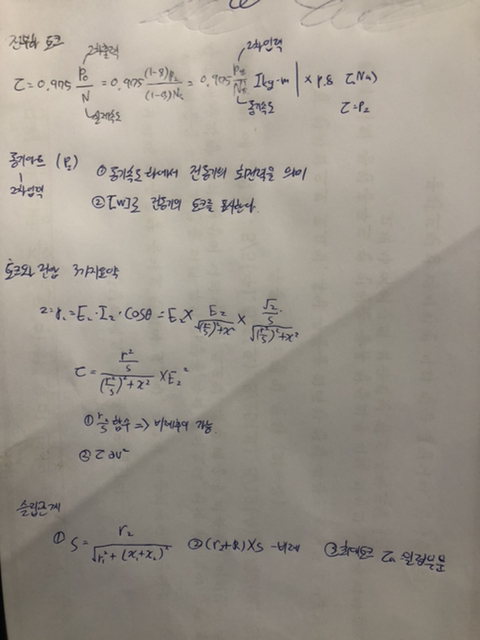 전부하 토크
2차출력
2차입력
τ = 0.975 P₀/N = 0.975 (1-s)P₂/(1-s)Nₛ = 0.975 P₂/Nₛ [kg-m] × 9.8 τ[N·m]
실제속도
동기속도
τ = P₂
동기와트 (P₂)
2차입력
① 동기속도 하에서 전동기의 회전력을 의미
② [W]로 전동기의 토크를 표시한다.
토크와 관한 3가지요약
τ = P₂ = E₂·I₂·cosθ = E₂ × E₂/√((r₂/s)²+x²) × (r₂/s)/√((r₂/s)²+x²)
τ = (r₂/s)/((r₂/s)²+x²) × E₂²
① r₂/s 함수 => 비례추이 가능
② τ ∝ V²
슬립관계
① s = r₂/√(r₁²+(x₁+x₂)²) ② (r₂+R)×s - 비례 ③ 최대토크